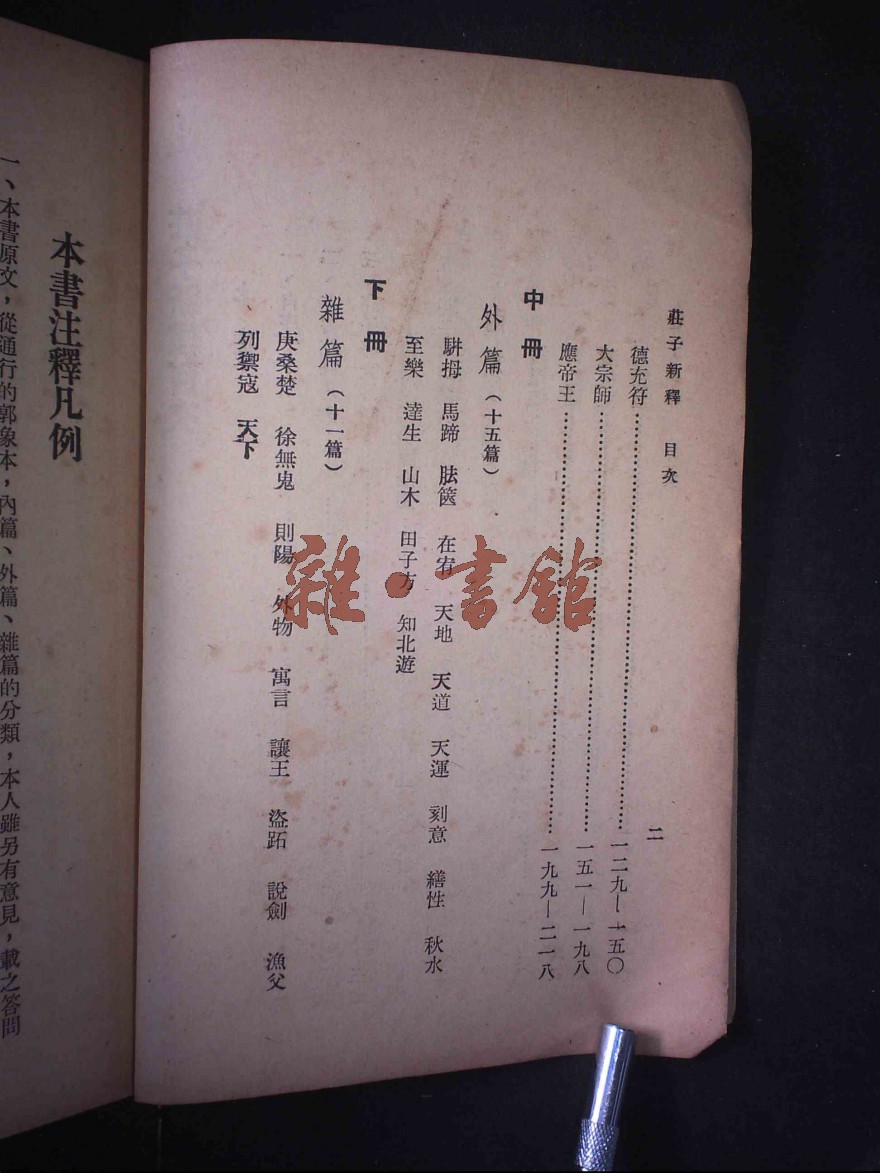 莊子新釋 目次
二
德充符……一二九—一五〇
大宗師……一五一—一九八
應帝王……一九九—二一八
中冊
外篇（十五篇）
駢拇 馬蹄 胠篋 在宥 天地 天道 天運 刻意 繕性 秋水
至樂 達生 山木 田子方 知北遊
下冊
雜篇（十一篇）
庚桑楚 徐無鬼 則陽 外物 寓言 讓王 盜跖 說劍 漁父
列禦寇 天下
雜·書館
本書注釋凡例
一、本書原文，從通行的郭象本，內篇、外篇、雜篇的分類，本人雖另有意見，載之答問